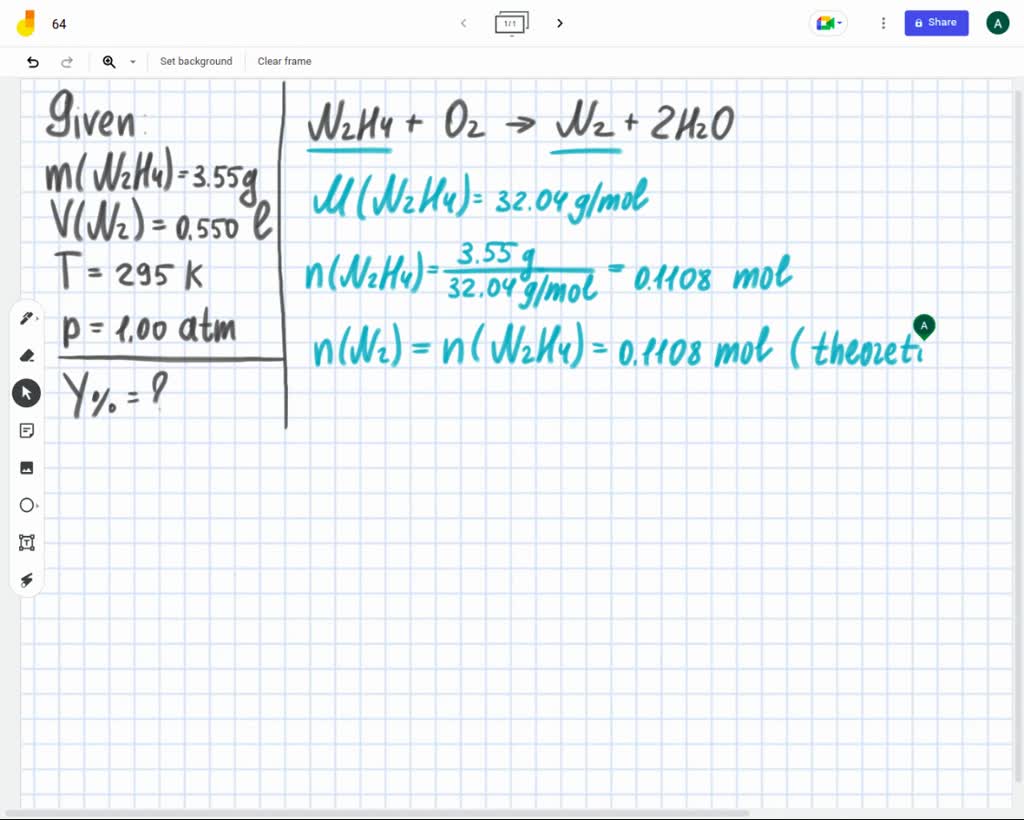 64
1/1
Share
A
Set background
Clear frame
Given:
m(N2H4)=3.55g
V(N2)=0.550 l
T = 295 K
p = 1.00 atm
Y% = ?
N2H4 + O2 → N2 + 2H2O
M(N2H4)= 32.04 g/mol
n(N2H4)= 3.55 g / 32.04 g/mol = 0.1108 mol
n(N2) = n(N2H4)= 0.1108 mol (theoreti
A